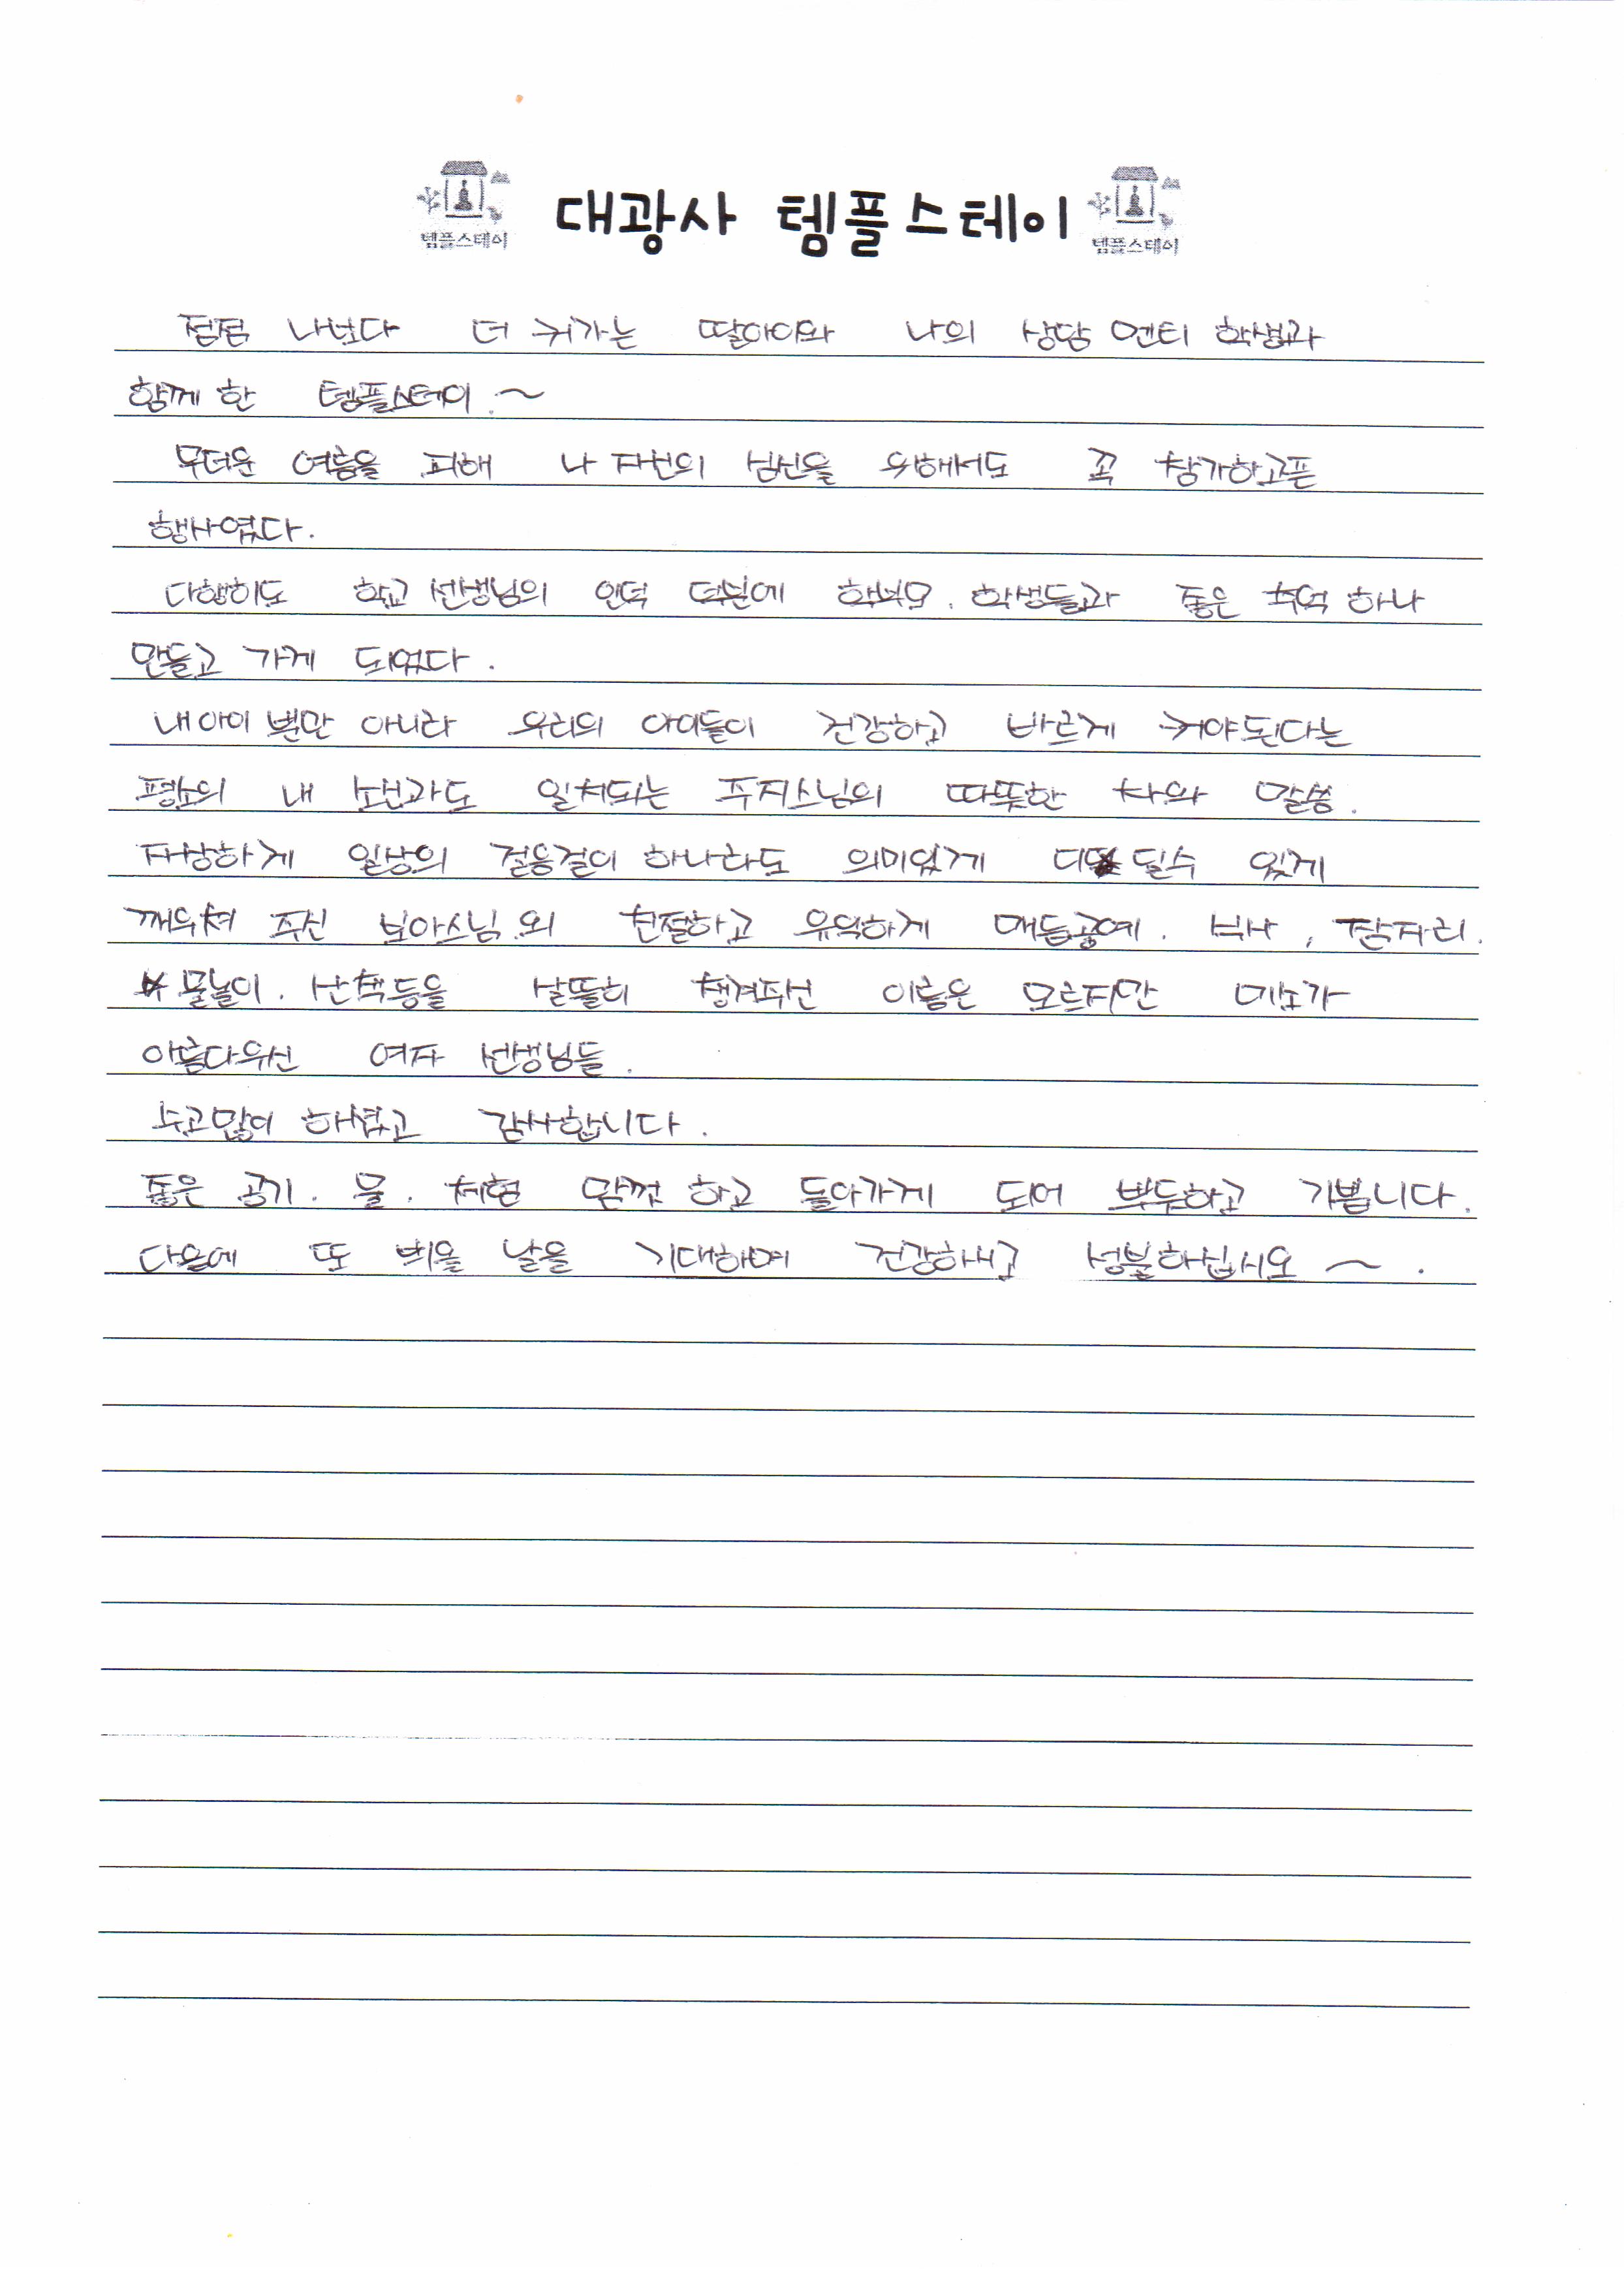 템플스테이 대광사 템플스테이 템플스테이
점점 나보다 더 커가는 딸아이와 나의 상담 멘티 학생과
함께 한 템플스테이.~
무더운 여름을 피해 나 자신의 심신을 위해서도 꼭 참가하고픈
행사였다.
다행히도 학교 선생님의 인덕 덕분에 학부모. 학생들과 좋은 추억 하나
만들고 가게 되었다.
내아이 뿐만 아니라 우리의 아이들이 건강하고 바르게 커야된다는
평소의 내 소신과도 일치되는 주지스님의 따뜻한 차와 말씀.
자상하게 일상의 걸음걸이 하나라도 의미있게 디딜수 있게
깨우쳐 주신 보아스님.외 친절하고 유익하게 매듭공예. 식사, 잠자리.
물놀이. 산책등을 살뜰히 챙겨주신 이름은 모르지만 미소가
아름다우신 여자 선생님들.
수고많이 하셨고 감사합니다.
좋은 공기. 물. 체험 맘껏 하고 돌아가게 되어 뿌듯하고 기쁩니다.
다음에 또 뵈올 날을 기대하며 건강하시고 성불하십시오~.